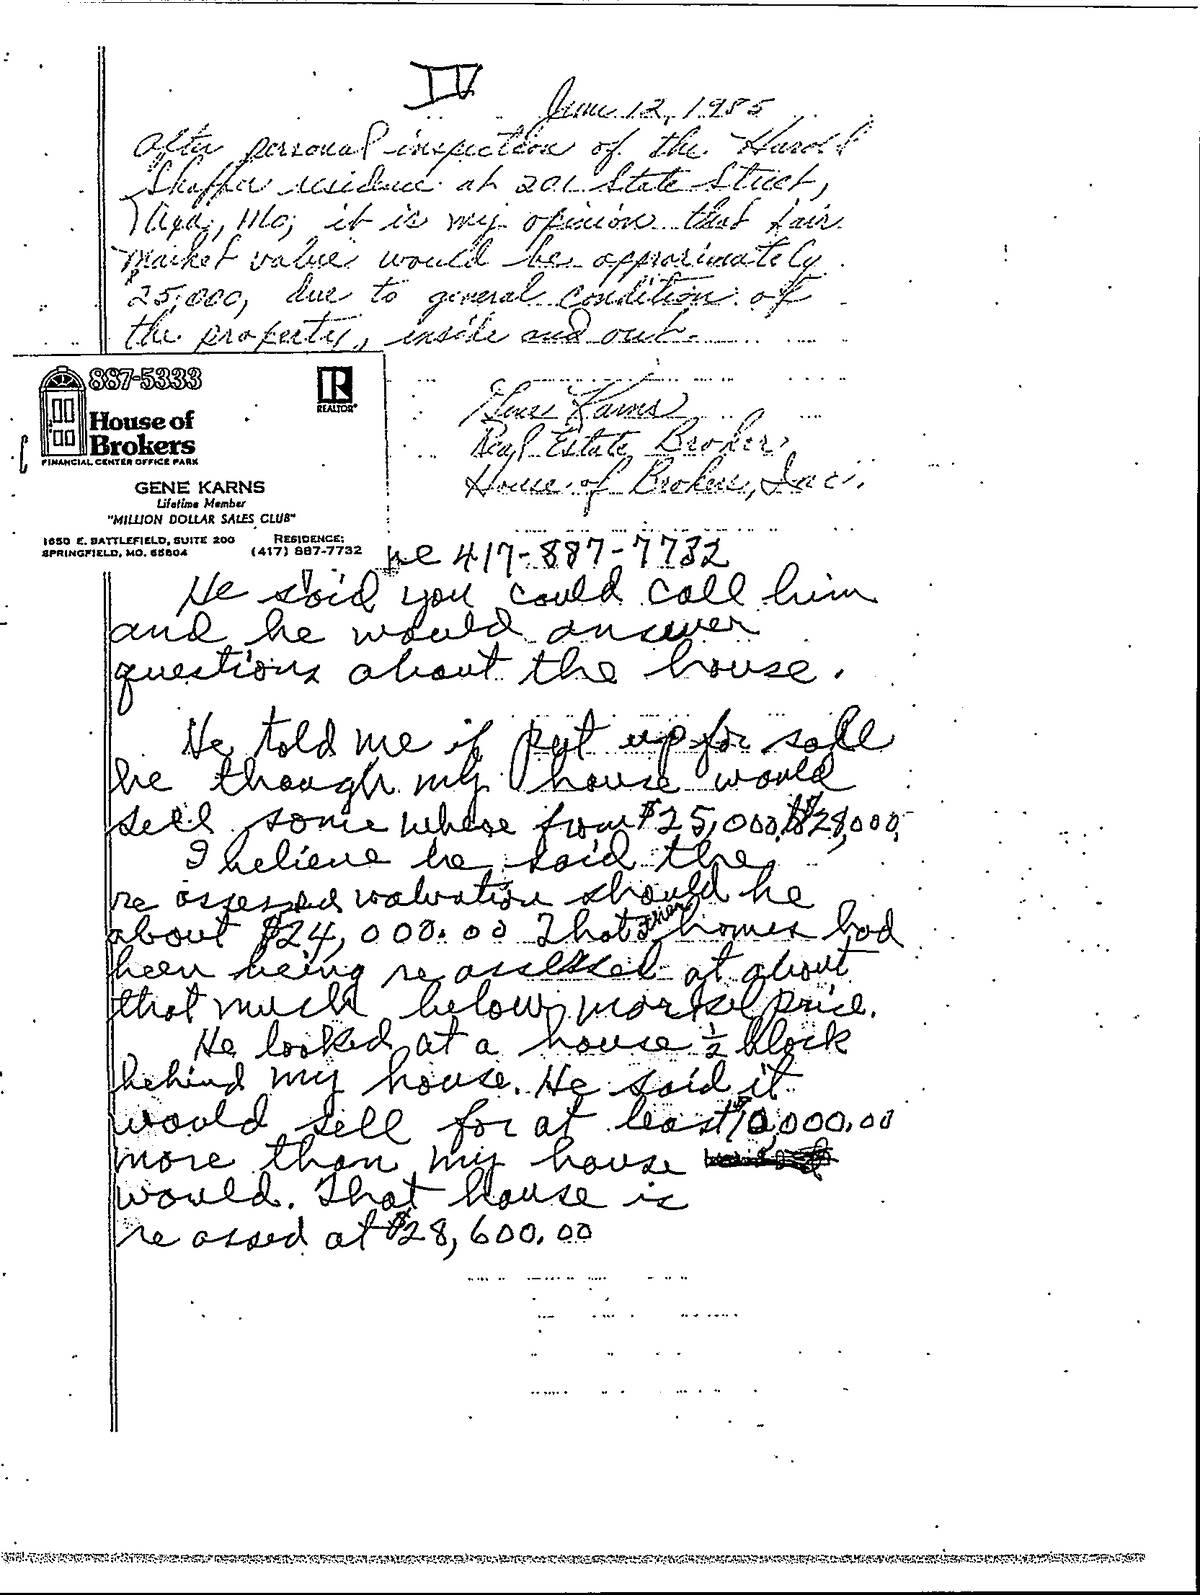 IV
June 12, 1985
After personal inspection of the Harold
Shaffer residence at 201 State Street,
Nixa, Mo; it is my opinion that fair
market value would be approximately
25,000, due to general condition of
the property, inside and out.
887-5333
REALTOR®
House of
Brokers
FINANCIAL CENTER OFFICE PARK
GENE KARNS
Lifetime Member
"MILLION DOLLAR SALES CLUB"
1650 E. BATTLEFIELD, SUITE 200
SPRINGFIELD, MO. 65804
RESIDENCE:
(417) 887-7732
Gene Karns
Real Estate Broker
House of Brokers, Inc.
417-887-7732
He said you could call him
and he would answer
questions about the house.
He told me if put up for sale
he though my house would
sell some where from $25,000 $28,000,
I believe he said the
re assessed valuation should be
about $24,000.00 That other homes had
been being re assessed at about
that much below market price.
He looked at a house 1/2 block
behind my house. He said it
would sell for at least $10,000.00
more than my house
would. That house is
re assed at $28,600.00